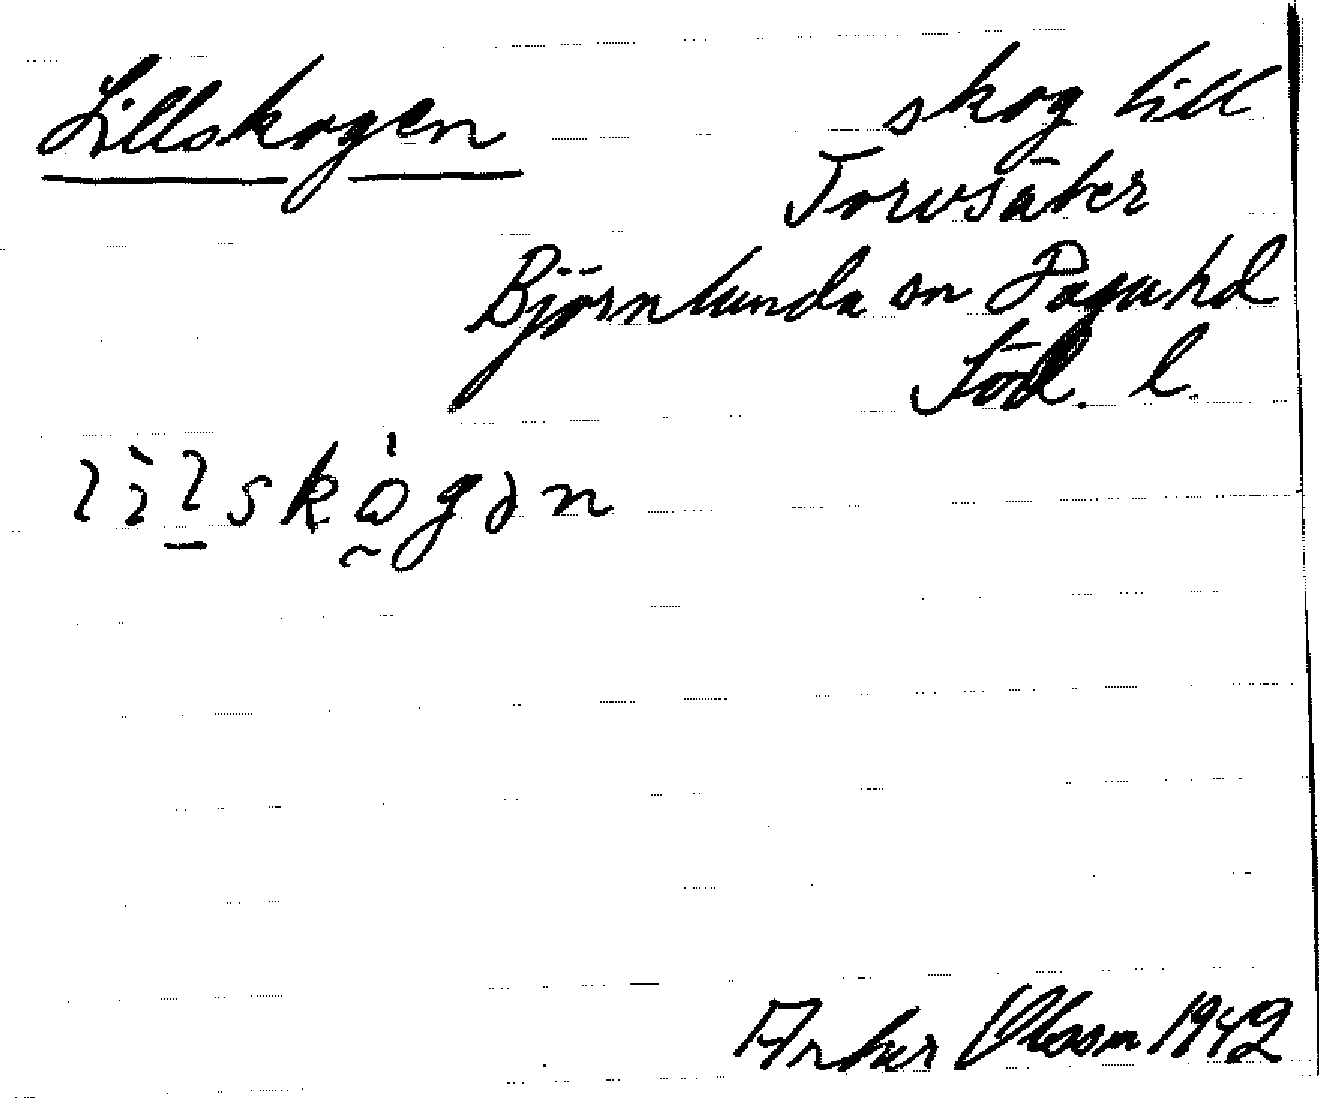 Lillskogen
skog till
Torvsäter
Björnlunda sn Daga hd
Söd. l.
lìlskógən
Olsson 1942